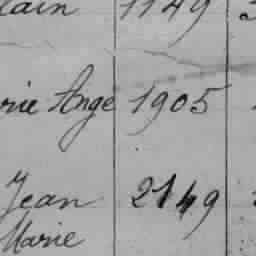 lain 1149
rie Ange 1905
Jean 2149
Marie